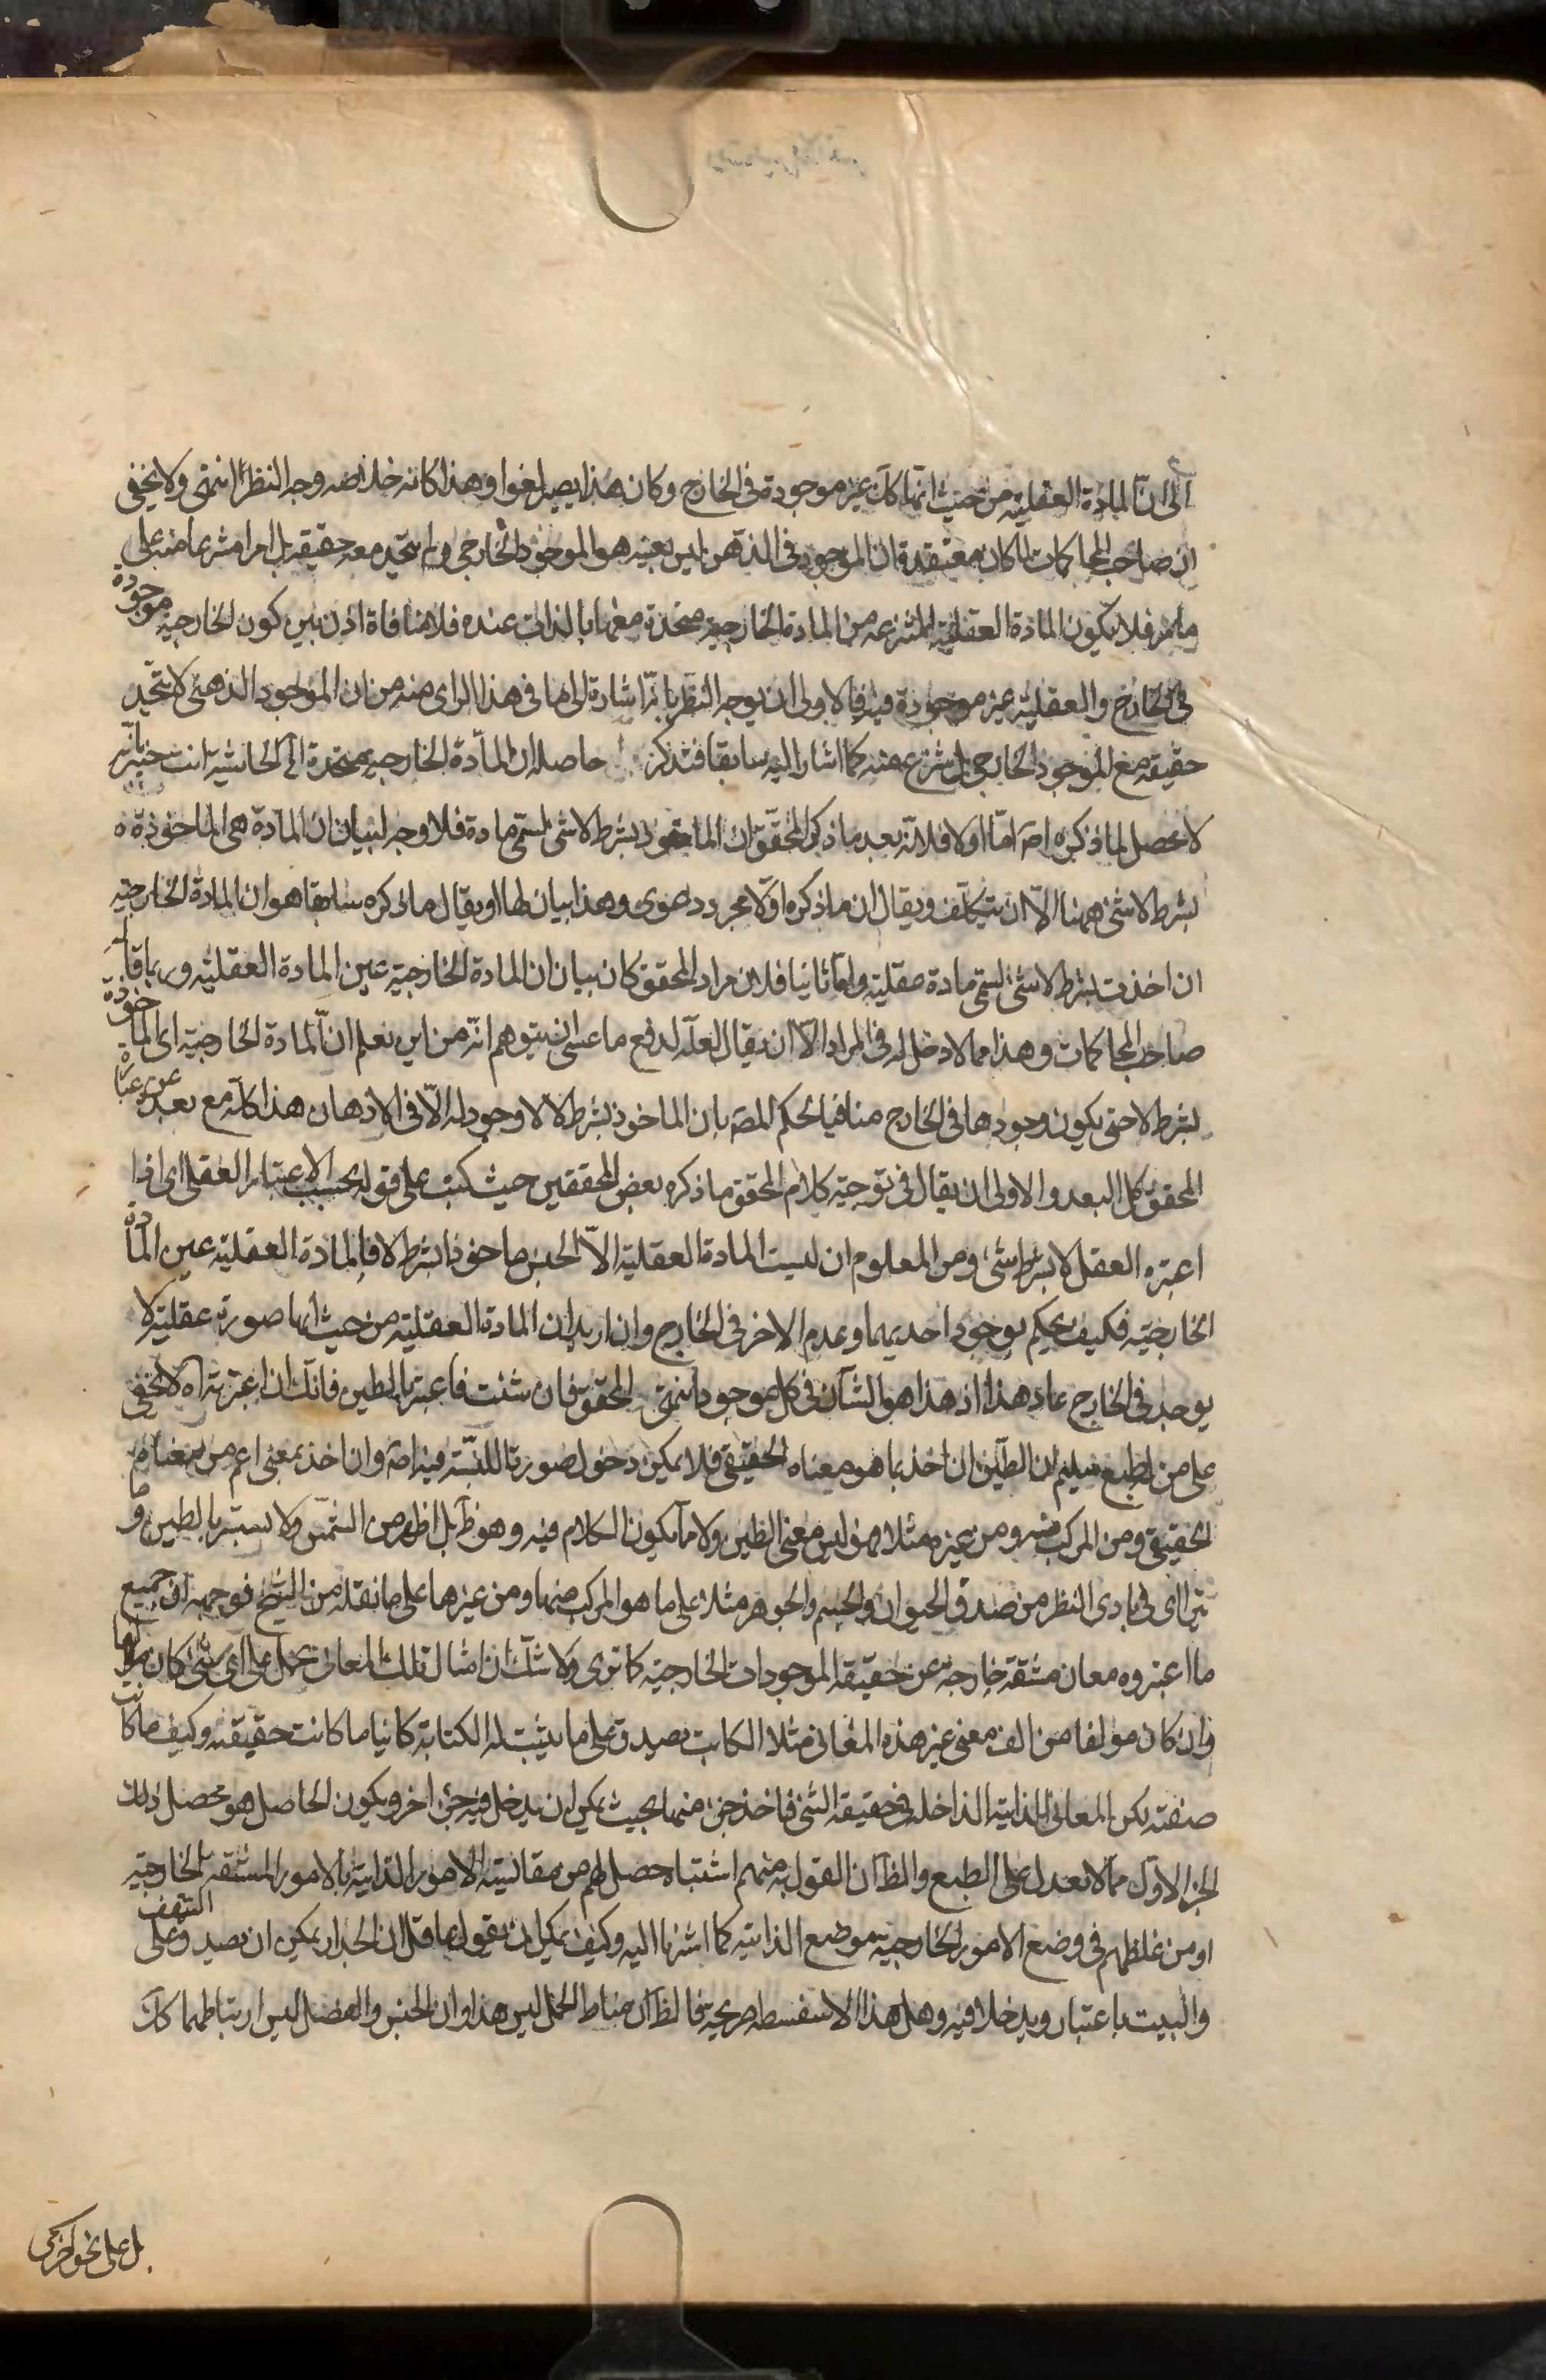 الى ان المادة العقلية من حيث انها كك غير موجودة فى الخارج وكان هذا يصير لغوا وهذا كانه خلاصه وجه النظر انتهى ولا يخفى
ان صاحب المحاكمات لما كان معتقده ان الموجود فى الذهن ليس بعينه هو الموجود الخارجى ولم يتحد معه حقيقه بل امرا منتزعا منه على
ما مر فلا يكون المادة العقلية المنتزعه من المادة الخارجية متحدة معها بالذات عنده فلا منافاة اذن بين كون الخارجية موجودة
فى الخارج والعقلية غير موجودة فيه فالاولى ان يوجه النظر بانه اشارة الى ما فى هذا الراى منه من ان الموجود الذهنى لا يتحد
حقيقه مع الموجود الخارجى بل ينتزع عنه كما اشار اليه سابقا فتذكر حاصله ان المادة الخارجيه متحدة الى الحاشيه انت خبير بانه
لا محصل لما ذكره اصه اما اولا فلانه بعد ما ذكر المحقق ان الماخوذ بشرط لا شى يسمى مادة فلا وجه لبيان ان المادة هى الماخوذة ه
بشرط لا شى ههنا الا ان يتكلف ويقال ان ما ذكره اولا مجرد دعوى وهذا بيان لها او يقال ما ذكره سابقا هو ان المادة الخارجيه
ان اخذت بشرط لا شى تسمى مادة عقلية واما ثانيا فلان مراد المحقق كان بيان ان المادة الخارجية عين المادة العقليه وربما قاله
صاحب المحاكمات وهذا مما لا دخل له فى المراد الا ان يقال لعله لدفع ما عسى ان يتوهم انه من اين يعلم ان المادة الخارجيه اى الماخوذة
بشرط لا حتى يكون وجودها فى الخارج منافيا لحكم المصه بان الماخوذ بشرط لا لا وجود له الا فى الاذهان هذا كله مع بعده عن عبارة
المحقق كل البعد والاولى ان يقال فى توجيه كلام المحقق ما ذكره بعض المحققين حيث كتب على قوله بحسب الاعتبار العقلى اى اذا
اعتبره العقل لا بشرط شى ومن المعلوم ان ليست المادة العقلية الا الجنس ماخوذا بشرط لا فالمادة العقلية عين المادة
الخارجيه فكيف يحكم بوجود احديهما وعدم الاخر فى الخارج وان اريد ان المادة العقليه من حيث انها صورة عقلية لا
يوجد فى الخارج عاد هذا اذ هذا هو الشان فى كل موجود انتهى المحقق فان شئت فاعتبر بالطين فانك ان اعتبرته اه لا يخفى
على من له طبع سليم ان الطين ان اخذ بما هو معناه الحقيقى فلا يمكن دخول صورة اللبنة فيه اصه وان اخذ بمعنى اعم من معناه
الحقيقى ومن المركب منه ومن غيره مثلا فهو ليس معنى الطين ولا ما يكون الكلام فيه وهو ظ بل اظهر من الشمس ولا يستتر بالطين وما
يتراای فى بادى النظر من صدق الحيوان والجسم والجوهر مثلا على ما هو المركب منها ومن غيرها على ما نقله من الشيخ فوجهه ان جميع
ما اعتبروه معان مشتقه خارجه عن حقيقه الموجودات الخارجيه كما ترى ولا شك ان امثال تلك المعانى يحمل على اى شى كان
وان كان مولفا من الف معنى غير هذه المعانى مثلا الكاتب يصدق على ما يثبت له الكتابة كائنا ما كانت حقيقته وكيف ما كانت
صفته لكن المعانى الذاتيه الداخله فى حقيقه الشى فاخذ جزء منها بحيث يمكن ان يدخل فيه جزء اخر ويكون الحاصل هو محصل ذلك
الجزء الاول مما لا يعدل على الطبع والظ ان القول به منهم اشتباه حصل لهم من مقائسه الامور الذاتية بالامور المشتقه الخارجيه
او من غلطهم فى وضع الامور الخارجيه موضع الذاتيه كما اشرنا اليه وكيف يمكن ان يقول عاقل ان الجدار يمكن ان يصدق على السقف
والبيت باعتبار ويدخلا فيه وهل هذا الا سفسطه صريحه فالظ ان مناط الحمل ليس هذا وان الجنس والفصل ليس ارتباطهما كك
بل على نحو اخر كى